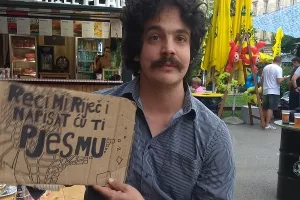 REČI MI RIJEČ I
NAPISAT ĆU TI
PJESMU